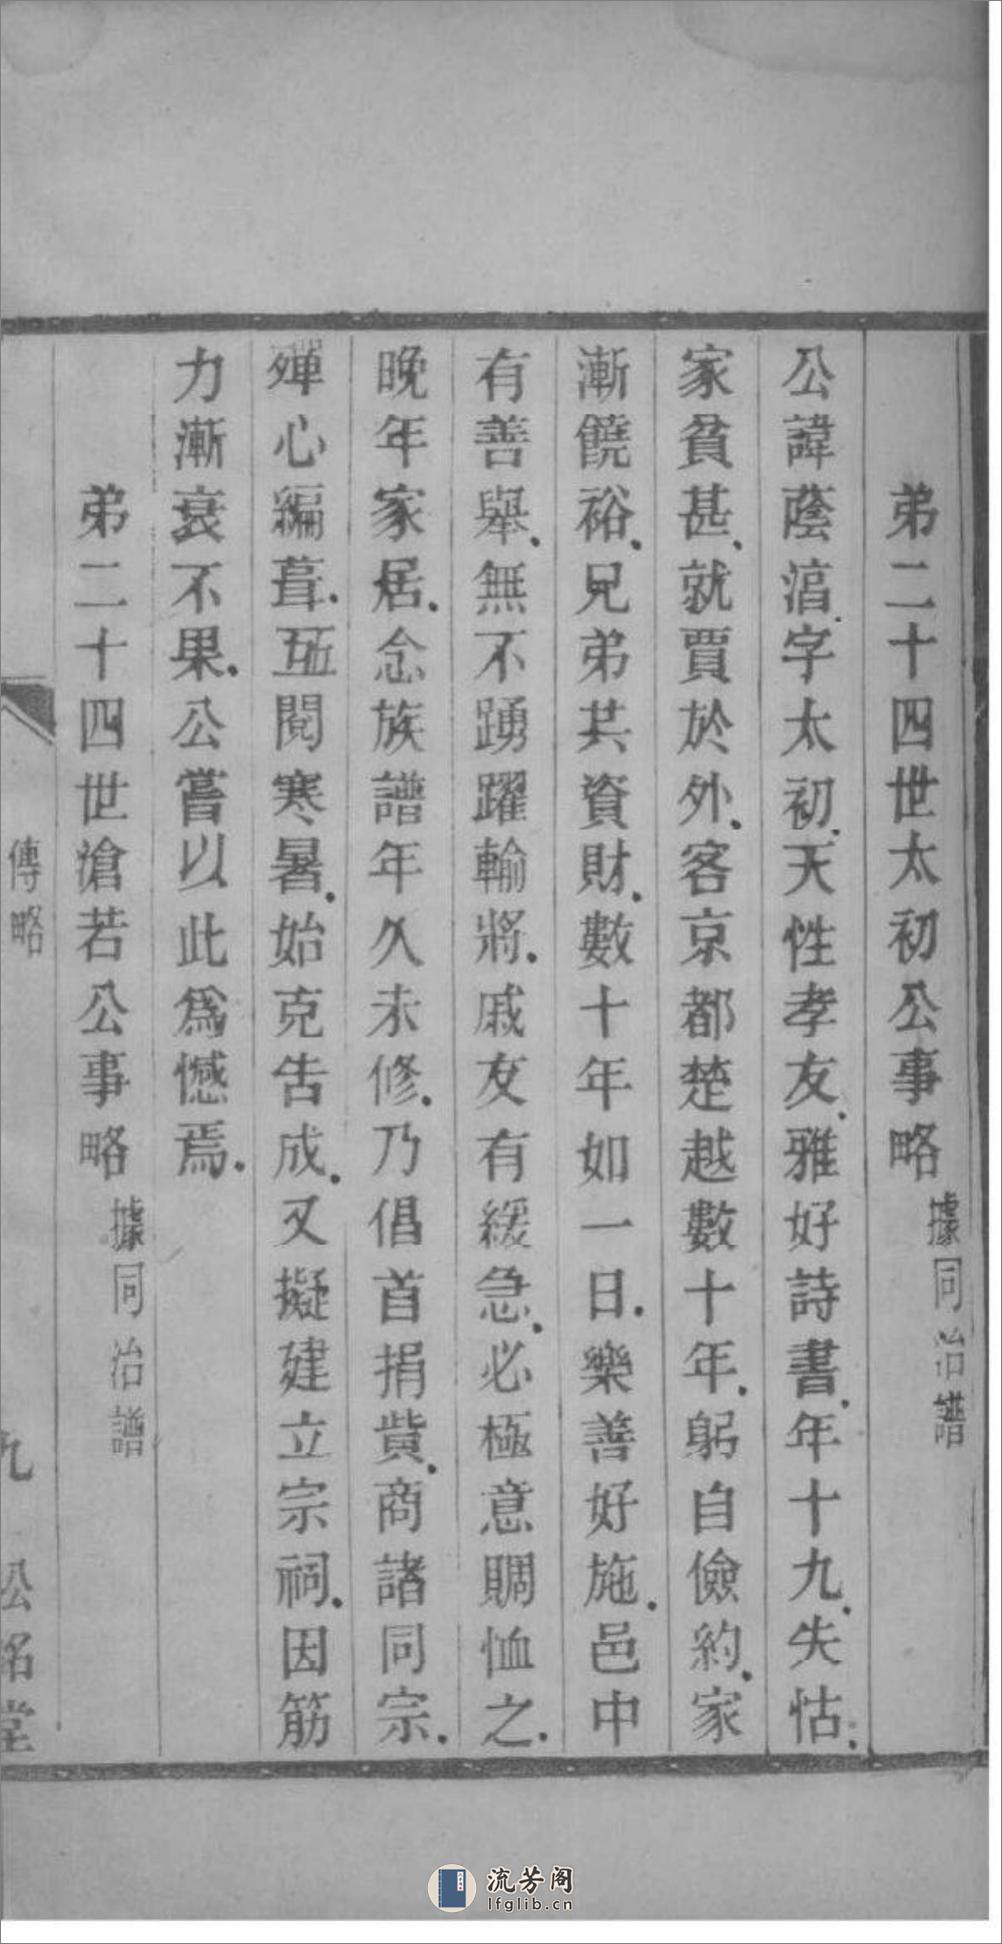 弟二十四世太初公事略據同治譜
公諱蔭㵂字太初天性孝友雅好詩書年十九失怙
家貧甚就賈於外客京都楚越數十年躬自儉約家
漸饒裕兄弟共資財數十年如一日樂善好施邑中
有善舉無不踴躍輸將戚友有緩急必極意賙恤之
晚年家居念族譜年久未修乃倡首捐貲商諸同宗
殫心編葺五閱寒暑始克告成又擬建立宗祠因筋
力漸衰不果公嘗以此為憾焉
弟二十四世滄若公事略據同治譜
傳略
九
流芳阁
lfglib.cn